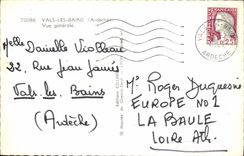 70086 VALS-LES-BAINS (Ardèche)
Vue générale.
Melle Danielle Violleau
22, Rue Jean Jaurès
Vals les Bains
(Ardèche)
ARDÈCHE
Mr Roger Duquesne
EUROPE No 1
LA BAULE
LOIRE Atl.